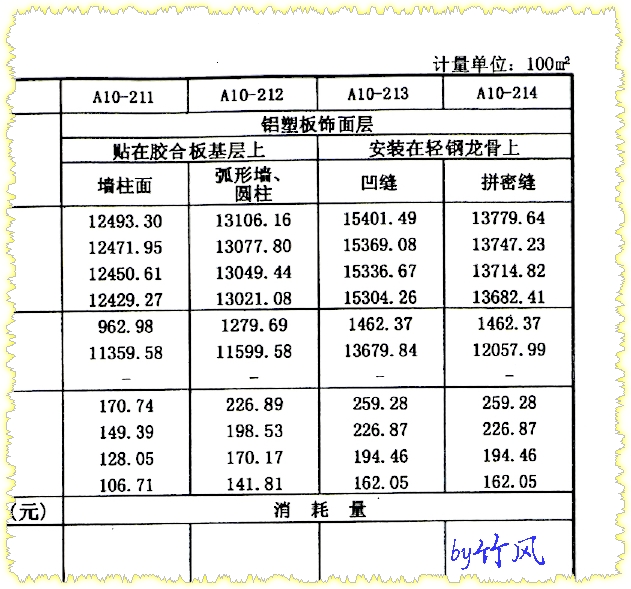 计量单位：100㎡
A10-211 A10-212 A10-213 A10-214
铝塑板饰面层
贴在胶合板基层上 安装在轻钢龙骨上
墙柱面 弧形墙、圆柱 凹缝 拼密缝
12493.30 13106.16 15401.49 13779.64
12471.95 13077.80 15369.08 13747.23
12450.61 13049.44 15336.67 13714.82
12429.27 13021.08 15304.26 13682.41
962.98 1279.69 1462.37 1462.37
11359.58 11599.58 13679.84 12057.99
- - - -
170.74 226.89 259.28 259.28
149.39 198.53 226.87 226.87
128.05 170.17 194.46 194.46
106.71 141.81 162.05 162.05
(元) 消耗量
by竹风